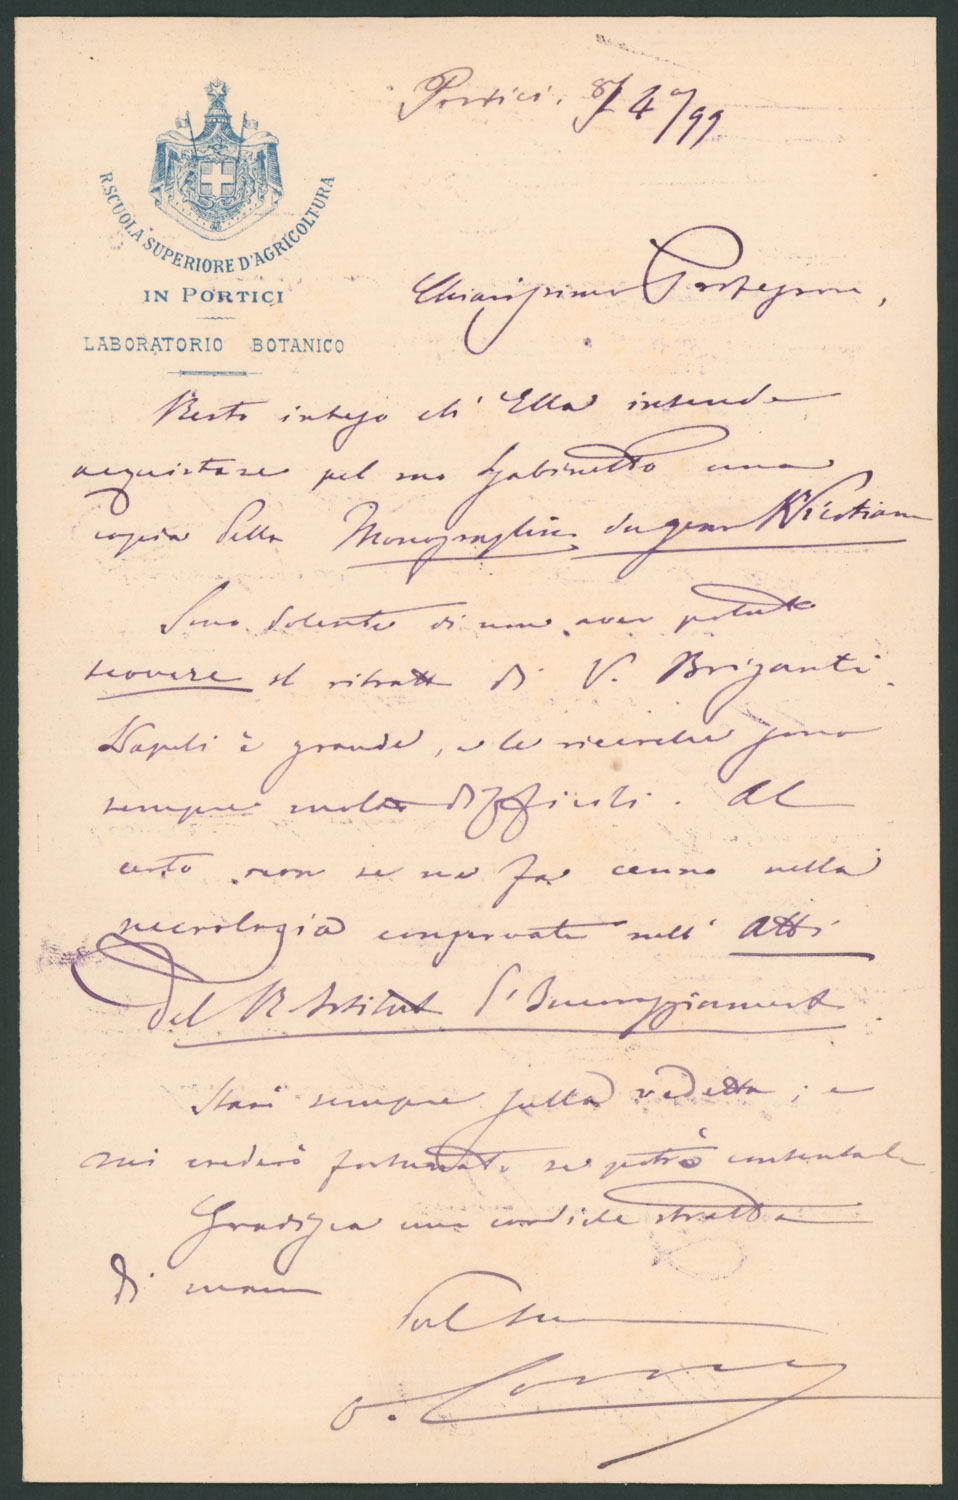 R. SCUOLA SUPERIORE D'AGRICOLTURA
IN PORTICI
LABORATORIO BOTANICO
Portici, 8/4/99
Chiarissimo Professore,
Resto inteso ch' Ella intende
acquistare pel suo Gabinetto una
copia della Monographie du genre Nicotiana
Sono dolente di non aver potuto
scovere il ritratto di V. Briganti.
Napoli è grande, e le ricerche sono
sempre molto difficili. Al
certo non se ne fa cenno nella
necrologia conservata nell' Atti
del R. Istituto d'Incoraggiamento.
Starò sempre sulla vedetta; e
mi crederò fortunato se potrò contentarla
Gradisca una cordiale stretta
di mano
dal suo
O. Comes